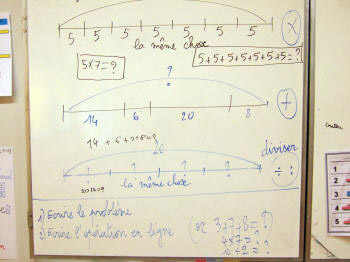 5 5 5 5 5 5 5 ×
la même chose
5×7=? 5+5+5+5+5+5+5=?
?
14 6 20 8 +
20
diviser
? ? ? ? ÷ :
la même chose
1) Ecrire le problème
2) Ecrire l'opération en ligne (ex 3+7+8=?)
4×7=?